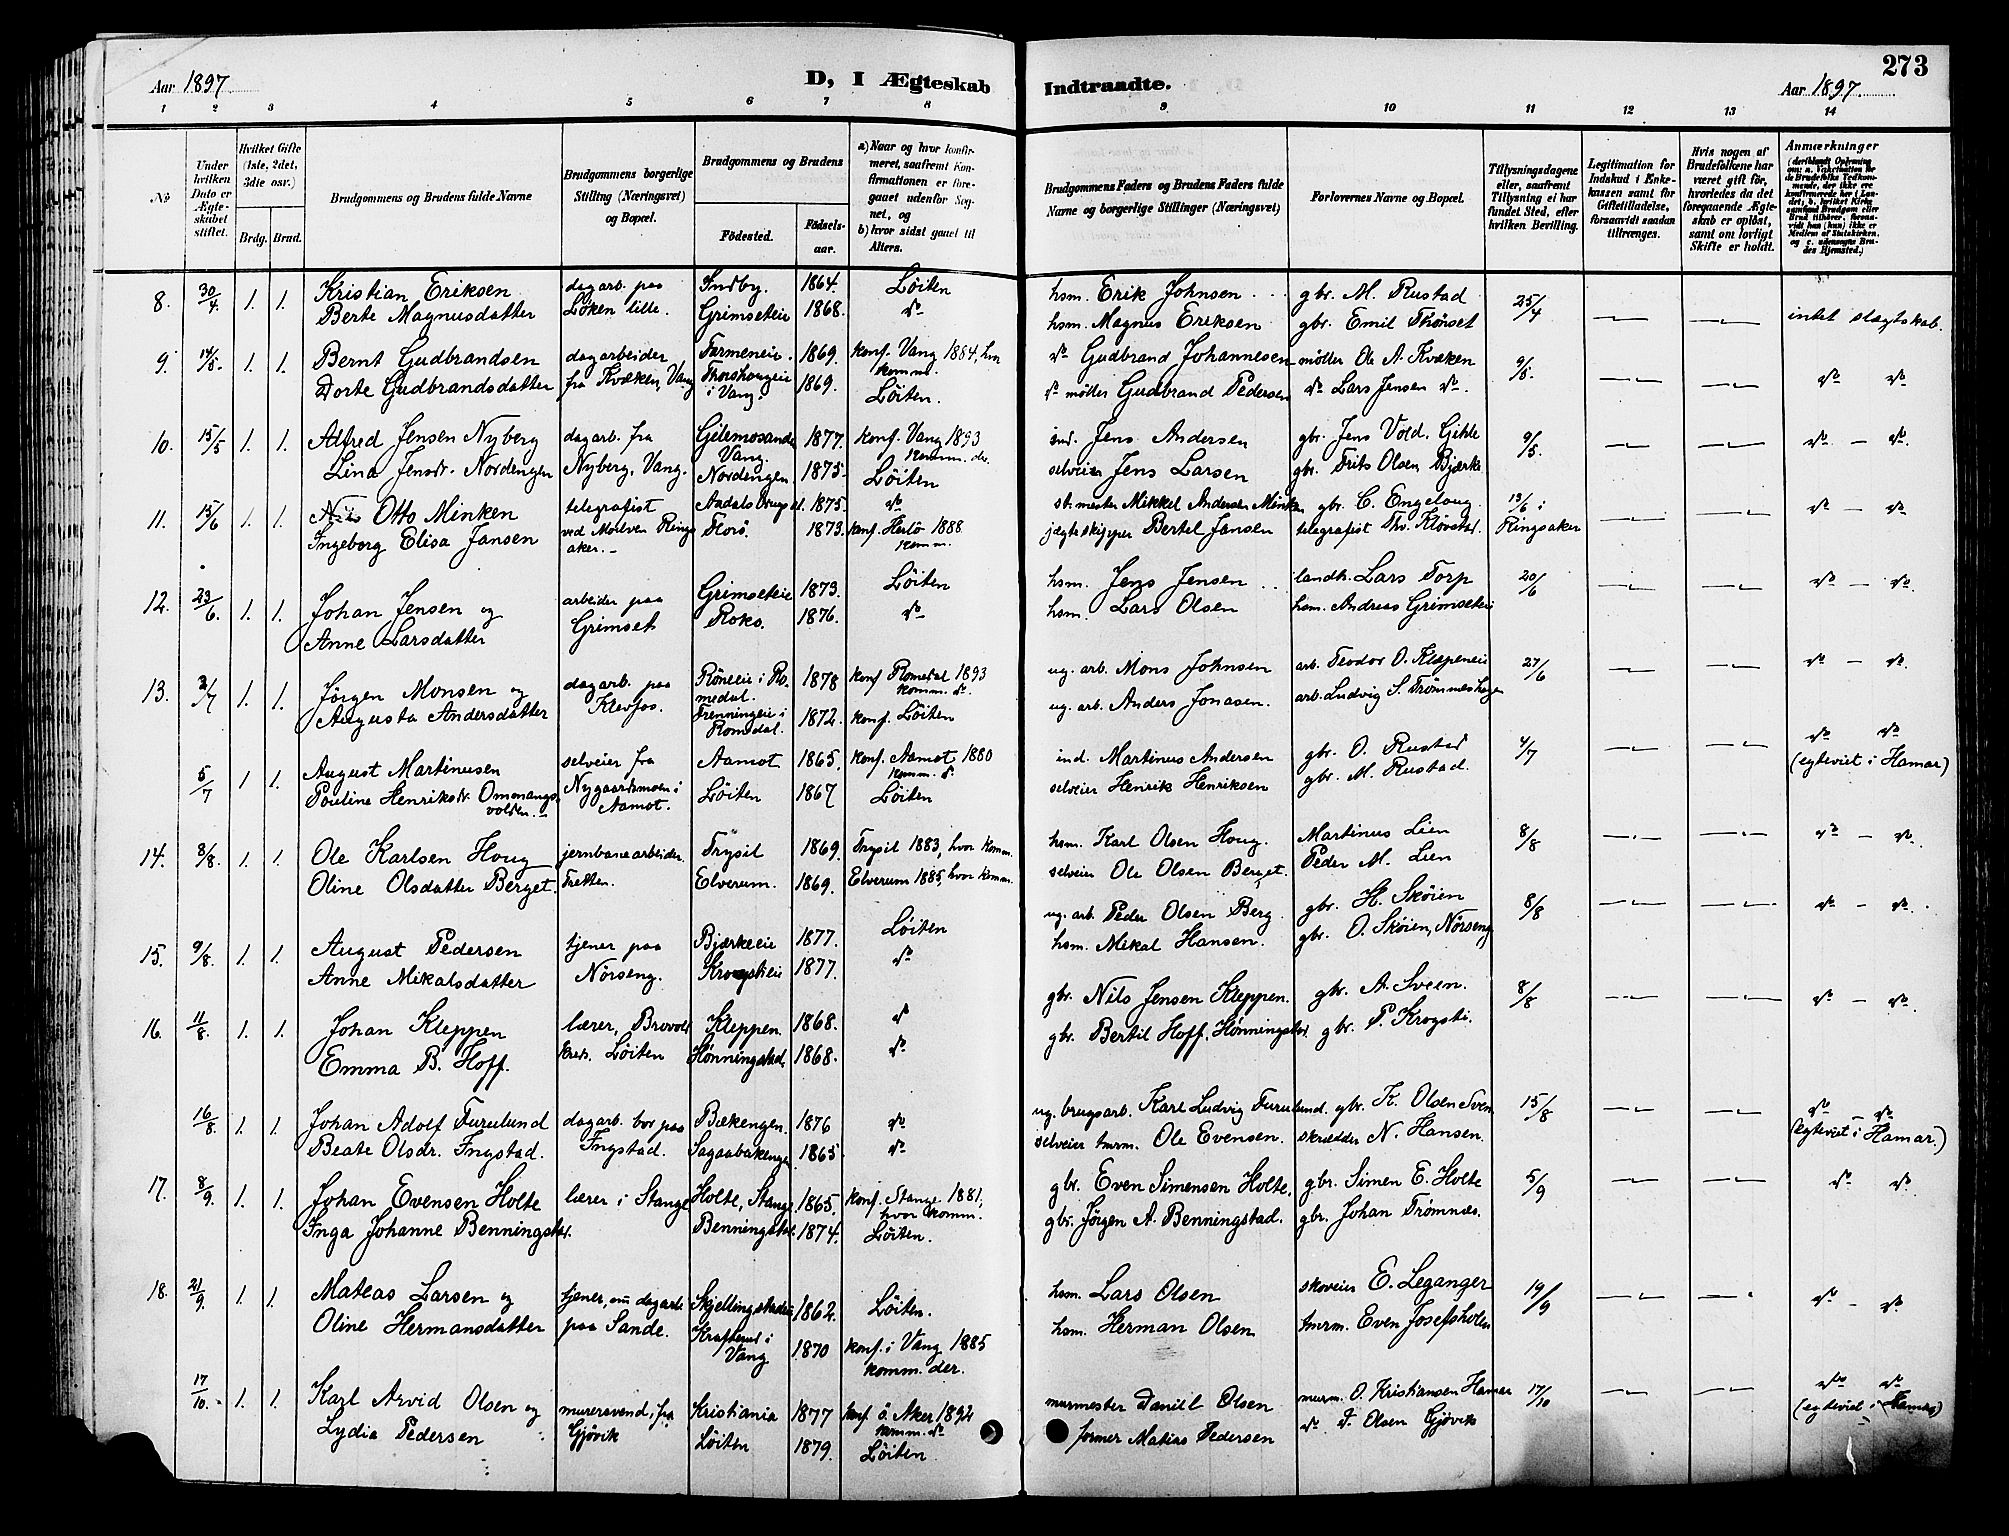 273
Aar 1897. D, I Ægteskab Indtraadte. Aar 1897.
1 2 3 4 5 6 7 8 9 10 11 12 13 14
No
Under hvilken Dato er Ægteskabet stiftet.
Hvilket Gifte (1ste, 2det, 3die osv.)
Brdg. Brud.
Brudgommens og Brudens fulde Navne
Brudgommens borgerlige Stilling (Næringsvei) og Bopæl.
Brudgommens og Brudens
Fødested. Fødselsaar.
a) Naar og hvor konfirmeret, saafremt Konfirmationen er foregaaet udenfor Sognet, og
b) hvor sidst gaaet til Alters.
Brudgommens Faders og Brudens Faders fulde Navne og borgerlige Stillinger (Næringsvei)
Forlovernes Navne og Bopæl.
Tillysningsdagene eller, saafremt Tillysning ei har fundet Sted, efter hvilken Bevilling.
Legitimation for Indskud i Enkekassen samt for Giftetilladelse, forsaavidt saadan tiltrænges.
Hvis nogen af Brudefolkene har været gift før, hvorledes da det foregaaende Ægteskab er opløst, samt om lovligt Skifte er holdt.
Anmærkninger
8. 30/4. 1. 1. Kristian Eriksen dagarb. paa Sndby. 1864. Löiten hsm. Erik Johnsen gbr. M. Rustad 25/4 intet slagtskab.
Berte Magnusdatter Löken lille. Grimseteie 1868. do hsm. Magnus Eriksen gbr. Emil Thönset
9. 14/5. 1. 1. Bernt Gudbrandsen dagarbeider Farmeneie. 1869. konf. Vang 1884, hvor komm. do Gudbrand Johannesen möller Ole A. Kvæken 9/5. do do
Dorte Gudbrandsdatter fra Kvæken, Vang Thorshougeie i Vang. 1869. Löiten. do möller Gudbrand Pedersen do Lars Jensen do
10. 15/5 1. 1. Alfred Jensen Nyberg dagarb. fra Gjelemosande Vang. 1877. konf. Vang 1893 komm. do. ind. Jens Andersen gbr. Jens Vold, Gihle 9/5. do - do.
Lina Jensdr. Nordengen Nyberg, Vang. Nordengen 1875. Löiten selveier Jens Larsen gbr. Frits Olsen Bjærke
11. 15/6 1. 1. Nils Otto Minken telegrafist Aadalsbrug 1875. do st. mester Mikkel Andersen Minken gbr. C. Engeloug 13/6 i do - do
Ingeborg Elisa Jansen ved Moelven Ringsaker.- Florö. 1873. konf. Herlö 1888 komm. jægteskipper Bertel Jansen telegrafist Thv. Klovstad. Ringsaker
12. 23/6. 1. 1. Johan Jensen og arbeider paa Grimseteie 1873. Löiten hsm. Jens Jensen landh. Lars Torp 20/6 do - do
Anne Larsdatter Grimset Roko. 1876. do hsm. Lars Olsen hsm. Andreas Grimseteie
13. 2/7 1. 1. Jörgen Monsen og dagarb. paa Röneeie i Romedal. 1878 konf Romedal 1893 komm. do. ug. arb. Mons Johnsen arb. Teodor O. Klæpeneie 27/6 do - do.
Augusta Andersdatter Klevfos. Frenningeie i Romedal. 1872. konf. Löiten ug. arb. Anders Jonasen. arb. Ludvig S. Trömmeshagen
5/7 1. 1. August Martinusen selveier fra Aamot 1865. konf. Aamot 1880 komm. do. ind. Martinus Andersen gbr. O. Rustad 4/7 do do
Pauline Henriksdr. Ommangsvolden.- Nygaardsmoen i Aamot. Löiten 1867 Löiten selveier Henrik Henriksen gbr. M. Rustad. (egteviet i Hamar)
14. 8/8. 1. 1. Ole Karlsen Houg jernbanearbeider. Trysil 1869. Trysil 1883, hvor komm. hsm. Karl Olsen Houg. Martinus Lien 8/8 do - do.
Oline Olsdatter Berget. Tretten. Elverum. 1869. Elverum 1885, hvor komm. selveier Ole Olsen Berget. Peder M. Lien
15. 9/8. 1. 1. August Pedersen tjener paa Bjærkeeie 1877. Löiten ug. arb. Peder Olsen Berg gbr. H. Sköien 8/8 do - do.
Anne Mikalsdatter Nörseng. Krogstieie 1877. do hsm. Mikal Hansen. gbr. O. Sköien, Nörseng
16. 11/8. 1. 1. Johan Kleppen lærer, Brovold Kleppen. 1868. do gbr. Nils Jensen Kleppen. gbr. A. Sveen. 8/8 do - do.
Emma B. Hoff. kreds. Löiten Hönningstad. 1868. do gbr. Bertil Hoff, Hönningstad. gbr. P. Krogsti.
16/8. 1. 1. Johan Adolf Furulund dagarb. bor paa Bækengen. 1876 do ug. brugsarb. Karl Ludvig Furulund. gbr. K. Olsen Sven 15/8 do - do
Beate Olsdr. Ingstad. Ingstad. Sagaabakengen 1865 do selveier tmrm. Ole Evensen. skrædder N. Hansen. (egteviet i Hamar.)
17. 8/9. 1. 1. Johan Evensen Holte lærer i Stange Holte, Stange 1865. konf. Stange 1881, hvor komm. gbr. Even Simensen Holte, gbr. Simen E. Holte 5/9 do do.
Inga Johanne Benningstad. Benningstad. 1874. Löiten. gbr. Jörgen A. Benningstad. gbr. Johan Trömnæs.
18. 21/9. 1. 1. Mateas Larsen og tjener, nu dagarb. Skjellingstadeie 1862. Löiten. hsm. Lars Olsen skoveier E. Leganger 19/9 do - do.
Oline Hermansdatter paa Sande. Krafterud i Vang 1870 konf. i Vang 1885 komm. der. hsm. Herman Olsen tmrm. Even Josefsholen
17/10. 1. 1. Karl Arvid Olsen og murersvend, fra Kristiania 1877 konf. ö. Aker 1892 komm. do murmester Daniel Olsen murm. O. Kristiansen Hamar 17/10 do do
Lydia Pedersen Gjövik Löiten 1879. Löiten former Matias Pedersen do F. Olsen Gjövik (egteviet i Hamar)